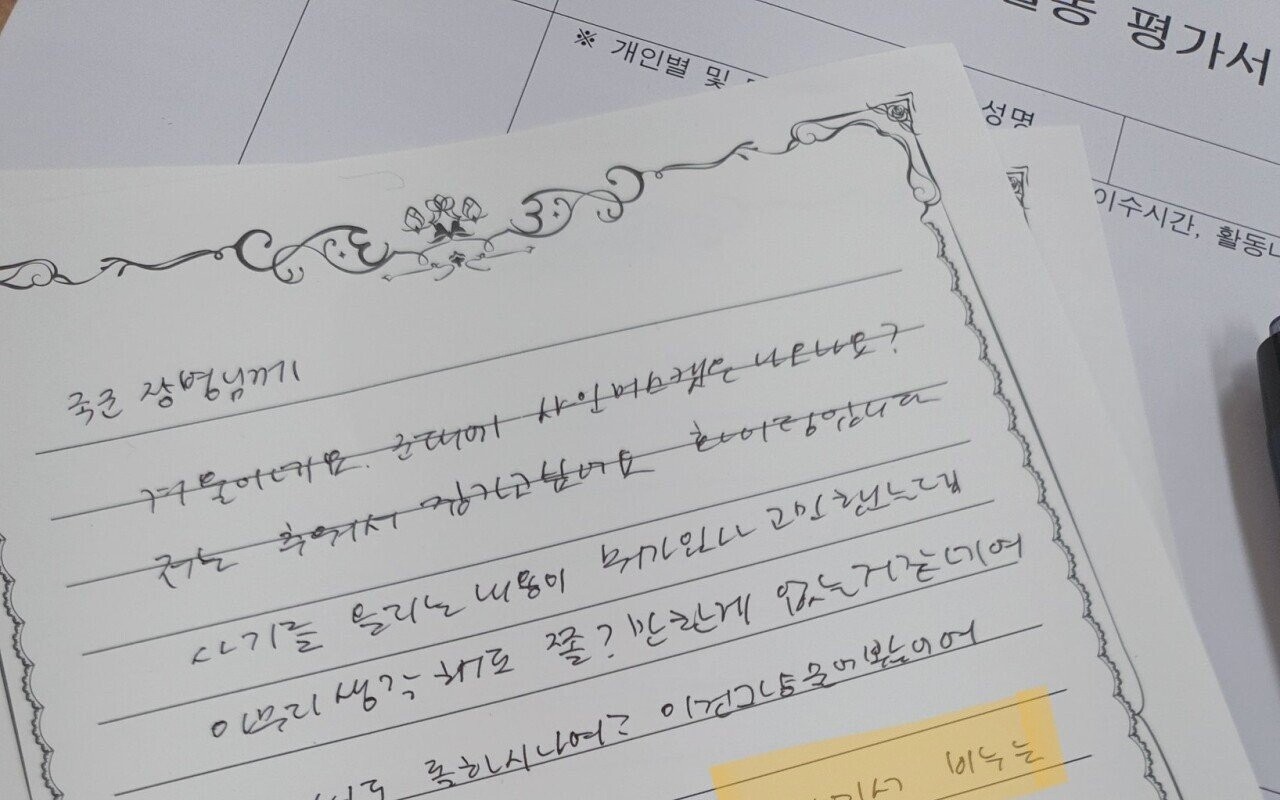 동 평가서
※ 개인별 및
성명
이수시간, 활동내
국군 장병님께
겨울이네요. 군대에 샤인머스켓은 나오나요?
저는 추워서 집가고싶네요 화이팅입니다
사기를 올리는 내용이 뭐가있나 고민했는데
아무리 생각해도 쫄? 만한게 없는거같네여
하시나여? 이건그냥
비누는